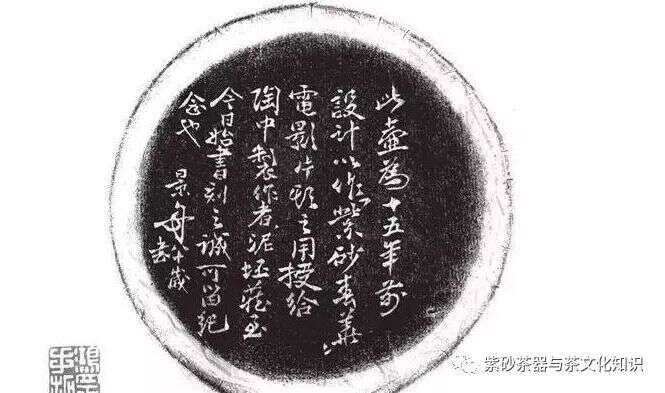 此壺為十五年前
設計以作紫砂春華
電影片頭之用授給
陶中製作者泥坯藏至
今日始書刻之誠可留紀
念也 景舟
紫砂茶器与茶文化知识